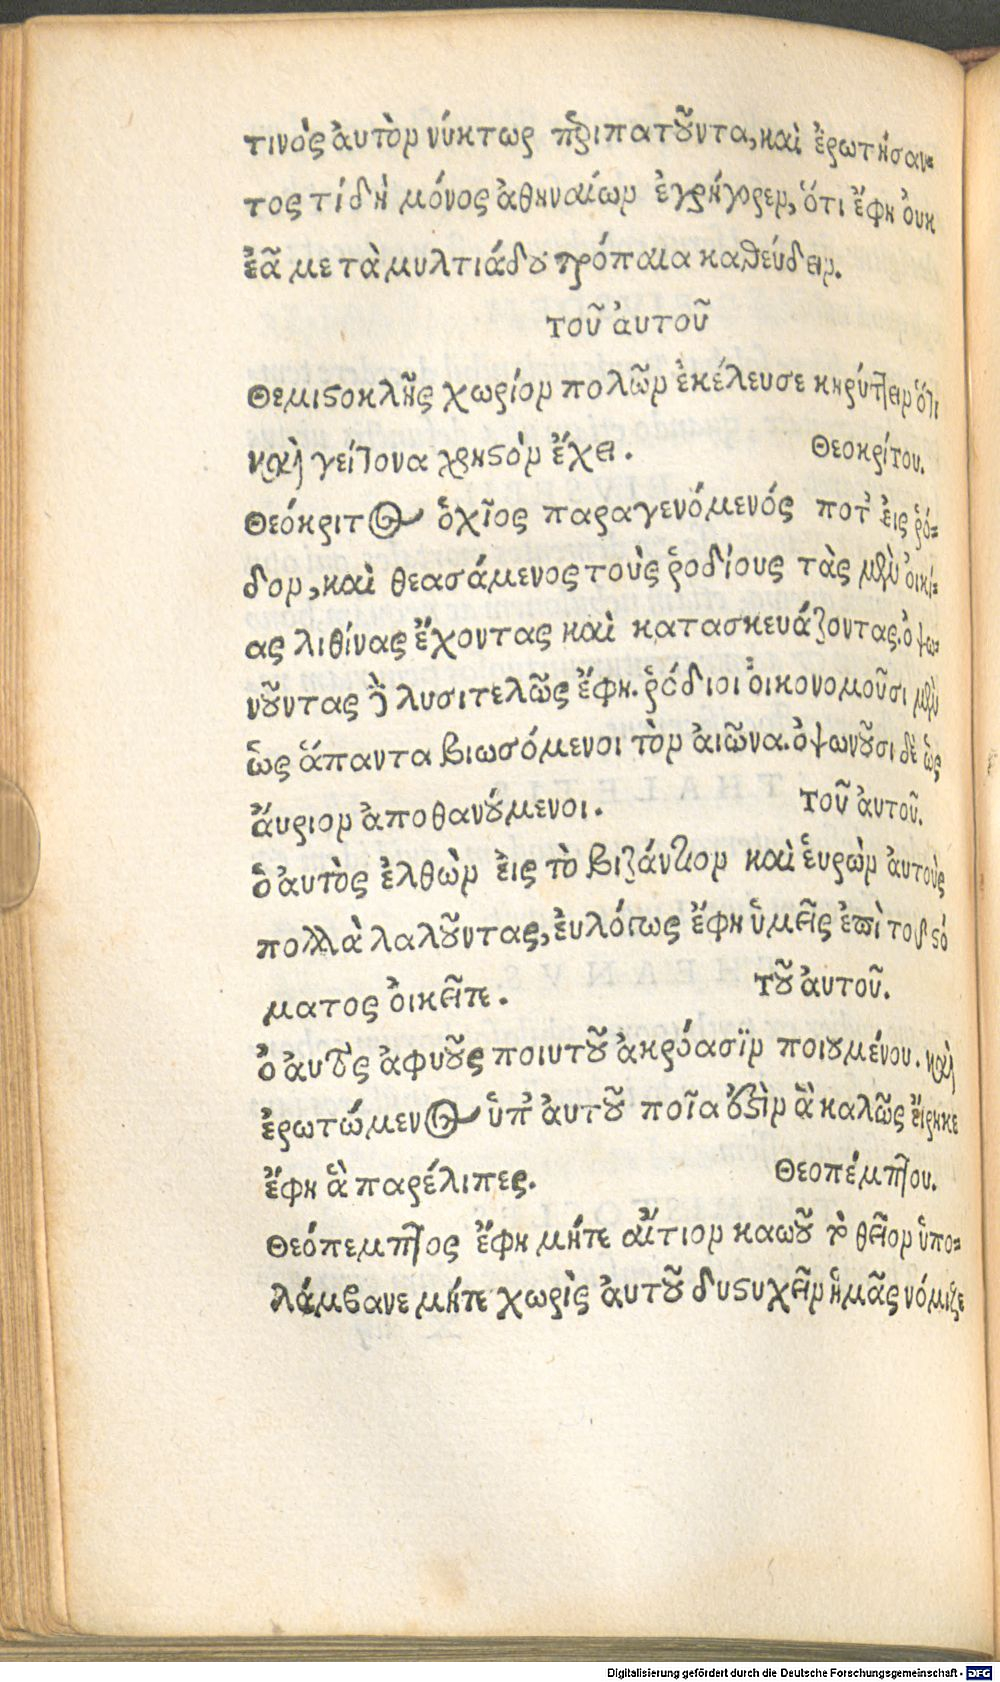 τινὸς ἀυτὸν νύκτωρ περιπατοῦντα, καὶ ἐρωτήσαν-
τος τί δὴ μόνος ἀθηναίων ἐγρήγορεν, ὅτι ἔφη ὀυκ
ἐᾶ με τὰ μυλτιάδου τρόπαια καθεύδειν.
τοῦ ἀυτοῦ
Θεμιστοκλῆς χωρίον πολῶν ἐκέλευσε κηρύττειν ὅτι
καὶ γείτονα χρηστὸν ἔχει.
Θεοκρίτου.
Θεόκριτος ὁ χῖος παραγενόμενός ποτ' ἐις ῥό-
δον, καὶ θεασάμενος τοὺς ῥοδίους τὰς μὲν ὀικί-
ας λιθίνας ἔχοντας καὶ κατασκευάζοντας. ὀψω-
νοῦντας δὲ λυσιτελῶς ἔφη. ῥόδιοι ὀικονομοῦσι μὲν
ὡς ἅπαντα βιωσόμενοι τὸν ἀιῶνα. ὀψωνοῦσι δὲ ὡς
ἄυριον ἀποθανούμενοι.
Τοῦ ἀυτοῦ.
ὁ ἀυτὸς ἐλθὼν ἐις τὸ βιζάντιον καὶ ἑυρὼν ἀυτοὺς
πολλὰ λαλοῦντας, ἐυλόγως ἔφη ὑμεῖς ἐπὶ τοῦ στό
ματος ὀικεῖτε.
Τοῦ ἀυτοῦ.
ὁ ἀυτὸς ἀφυοῦς ποιυτοῦ ἀκρόασϊν ποιουμένου. καὶ
ἐρωτώμενος ὑπ' ἀυτοῦ ποῖα ἐστὶν ἃ καλῶς ἔιρηκε
ἔφη ἃ παρέλιπες.
Θεοπέμπτου.
Θεόπεμπτος ἔφη μήτε ἄιτιον κακοῦ τὸ θεῖον ὑπο-
λάμβανε μήτε χωρὶς ἀυτοῦ δυστυχεῖν ἡμᾶς νόμιζε
Digitalisierung gefördert durch die Deutsche Forschungsgemeinschaft - DFG